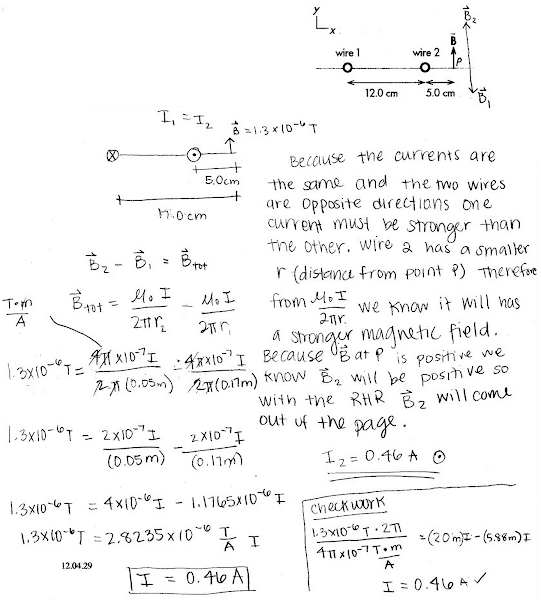 y
x
B⃗₂
B⃗
wire 1 wire 2 P
12.0 cm 5.0 cm
B⃗₁
I₁ = I₂
B⃗ = 1.3×10⁻⁶ T
5.0cm
17.0cm
Because the currents are
the same and the two wires
are opposite directions one
current must be stronger than
the other. Wire 2 has a smaller
r (distance from point P) Therefore
from μ₀I/2πr. we know it will has
a stronger magnetic field.
Because B⃗ at P is positive we
know B⃗₂ will be positive so
with the RHR B⃗₂ will come
out of the page.
I₂ = 0.46 A ⊙
B⃗₂ - B⃗₁ = B⃗tot
T·m/A
B⃗tot = μ₀I/2πr₂ - μ₀I/2πr₁
1.3×10⁻⁶T = 4π×10⁻⁷I/2π(0.05m) - 4π×10⁻⁷I/2π(0.17m)
1.3×10⁻⁶T = 2×10⁻⁷I/(0.05m) - 2×10⁻⁷I/(0.17m)
1.3×10⁻⁶T = 4×10⁻⁶I - 1.1765×10⁻⁶I
1.3×10⁻⁶T = 2.8235×10⁻⁶ T/A I
12.04.29
I = 0.46 A
check work
1.3×10⁻⁶T·2π/4π×10⁻⁷ T·m/A = (20m)I - (5.88m)I
I = 0.46 A ✓